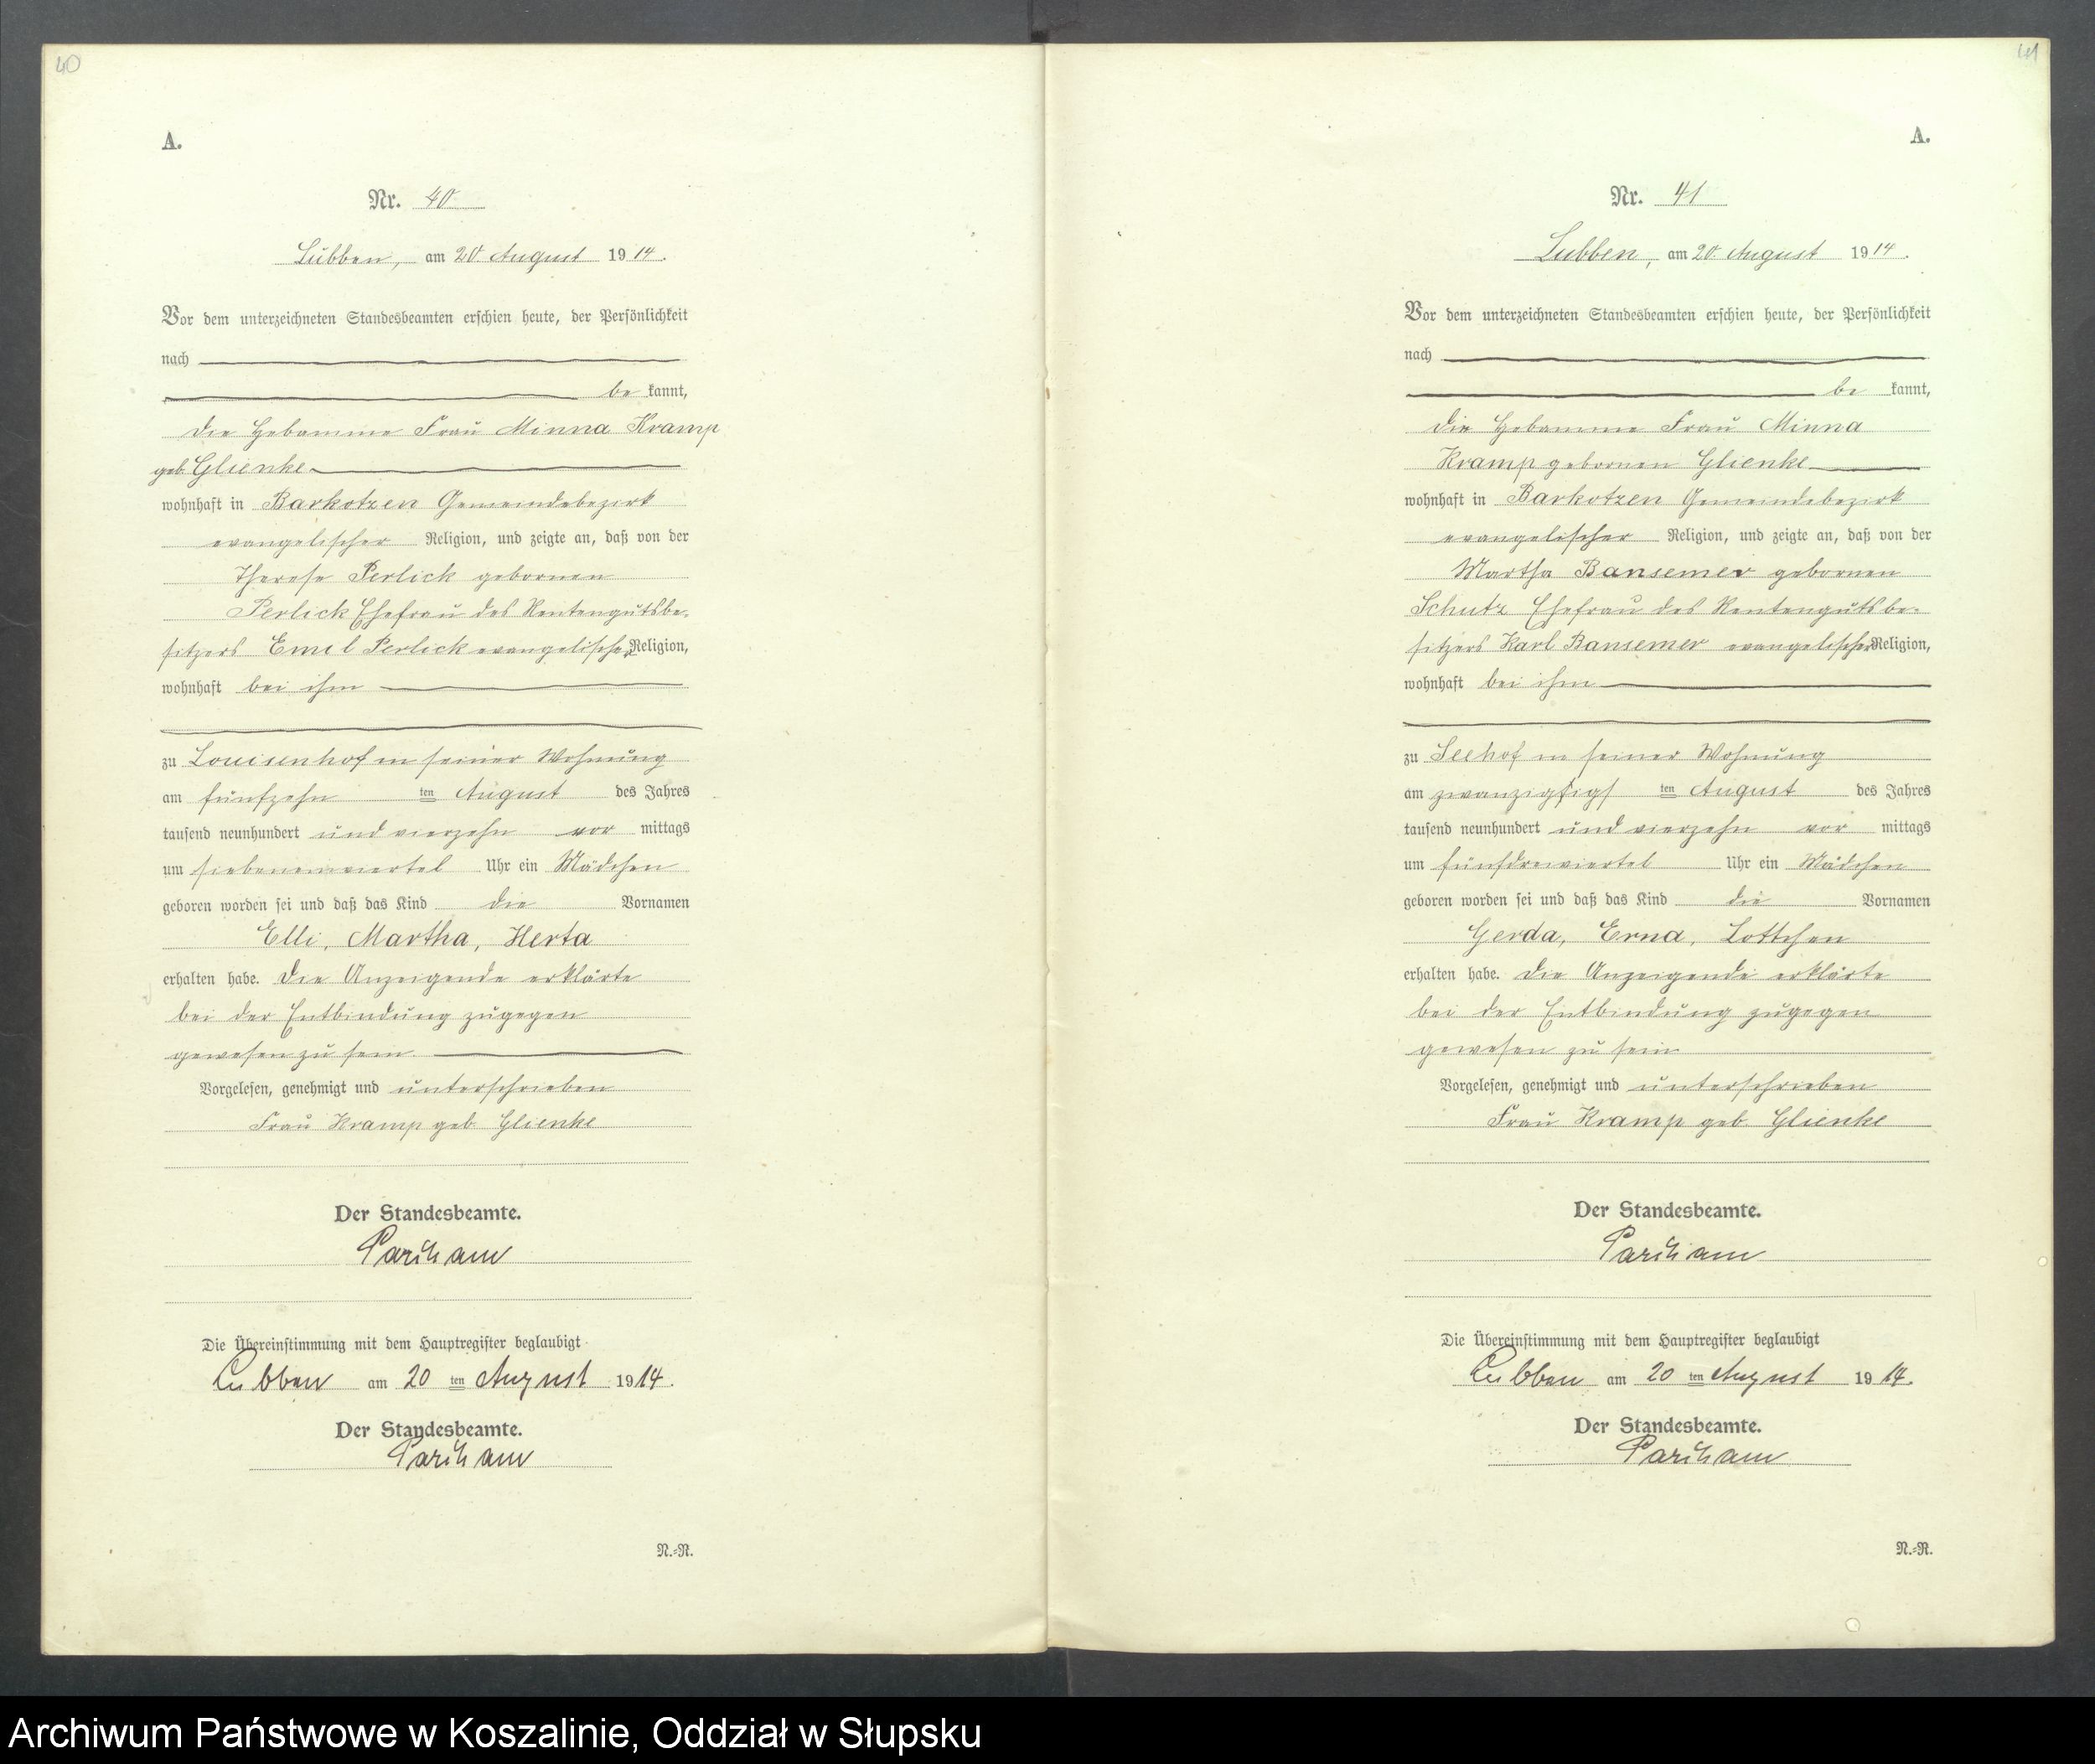 40
A.
Nr. 40
Lübben, am 20. August 1914.
Vor dem unterzeichneten Standesbeamten erschien heute, der Persönlichkeit
nach
be kannt,
die Hebamme Frau Minna Kramp
geb. Glienke
wohnhaft in Barkotzen Gemeindebezirk
evangelischer Religion, und zeigte an, daß von der
Therese Perlick gebornen
Perlick Ehefrau des Rentengutsbe-
sitzers Emil Perlick evangelischer Religion,
wohnhaft bei ihm
zu Louisenhof in seiner Wohnung
am fünfzehn ten August des Jahres
tausend neunhundert und vierzehn vor mittags
um siebeneinviertel Uhr ein Mädchen
geboren worden sei und daß das Kind die Vornamen
Elli, Martha, Herta
erhalten habe. Die Anzeigende erklärte
bei der Entbindung zugegen
gewesen zu sein.
Vorgelesen, genehmigt und unterschrieben
Frau Kramp geb. Glienke
Der Standesbeamte.
Die Übereinstimmung mit dem Hauptregister beglaubigt
Lubben am 20 ten August 1914.
Der Standesbeamte.
N.=R.
41
A.
Nr. 41
Lubben, am 20. August 1914.
Vor dem unterzeichneten Standesbeamten erschien heute, der Persönlichkeit
nach
be kannt,
die Hebamme Frau Minna
Kramp gebornen Glienke
wohnhaft in Barkotzen Gemeindebezirk
evangelischer Religion, und zeigte an, daß von der
Martha Bansemer gebornen
Schutz Ehefrau des Rentengutsbe-
sitzers Karl Bansemer evangelischer Religion,
wohnhaft bei ihm
zu Seehof in seiner Wohnung
am ten August des Jahres
tausend neunhundert und vierzehn vor mittags
um fünfdreiviertel Uhr ein Mädchen
geboren worden sei und daß das Kind die Vornamen
Gerda, Erna, Lottchen
erhalten habe. Die Anzeigende erklärte
bei der Entbindung zugegen
gewesen zu sein
Vorgelesen, genehmigt und unterschrieben
Frau Kramp geb. Glienke
Der Standesbeamte.
Die Übereinstimmung mit dem Hauptregister beglaubigt
Lubben am 20 ten August 1914.
Der Standesbeamte.
N.=R.
Archiwum Państwowe w Koszalinie, Oddział w Słupsku